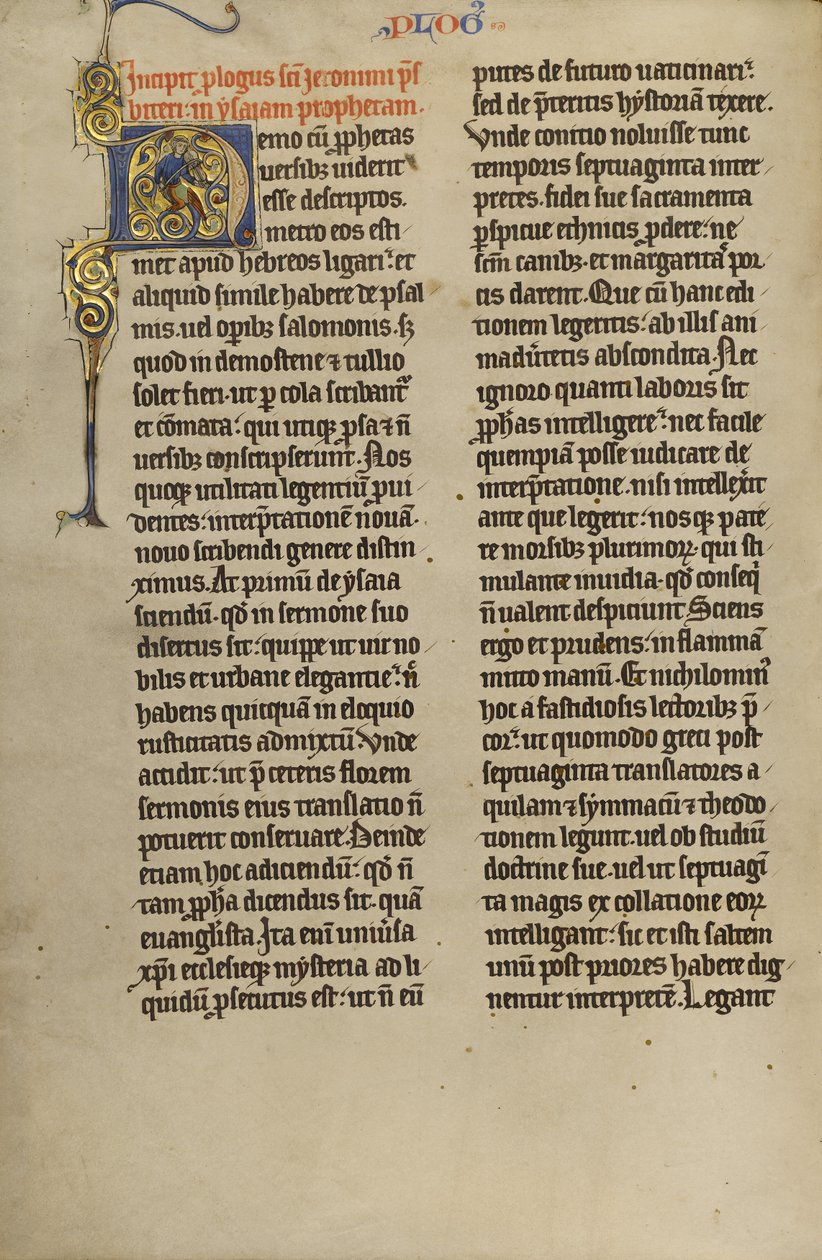 PLOG᷒
Incipit plogus sc̄i Jeronimi p̄s
biteri in ẏsaiam prophetam.
Nemo cū ꝓphetas
uersibꝫ uiderit
esse descriptos.
metro eos esti
met apud hebreos ligari: et
aliquid simile habere de psal
mis. uel oꝑibꝫ salomonis. sꝫ
quod in demostene ⁊ tullio
solet fieri. ut ꝑ cola scribant᷑
et cōmata: qui utiqꝫ ꝓsa ⁊ n̄
uersibꝫ conscripserunt. Nos
quoqꝫ utilitati legentiū ꝓui
dentes: interp̄tationē nouā.
nouo scribendi genere distin
ximus. At primū de ẏsaia
sciendū. qd̄ in sermone suo
disertus sit: quippe ut uir no
bilis et urbane elegantie: n̄
habens quicquā in eloquio
rusticitatis admixtū. Vnde
accidit: ut p̄ ceteris florem
sermonis eius translatio n̄
potuerit conseruare. Deinde
etiam hoc adiciendū: qd̄ n̄
tam ꝓph̄a dicendus sit. quā
euangl̄ista. Ita eni̅ uniūsa
xp̄i ecclesieqꝫ mẏsteria ad li
quidū ꝓsecutus est: ut n̄ eū
putes de futuro uaticinari:
sed de p̄teritis hẏstoriā texere.
Vnde conicio noluisse tunc
temporis septuaginta inter
pretes. fidei sue sacramenta
ꝑspicue ethnicis ꝓdere: ne
sc̄m canibꝫ. et margaritas por
cis darent. Que cū hanc edi
tionem legeritis: ab illis ani
madūtetis abscondita. Nec
ignoro quanti laboris sit
ꝓph̄as intelligere: nec facile
quempiā posse iudicare de
interp̄tatione. nisi intellex̄it
ante que legerit: nosqꝫ pate
re morsibꝫ plurimoꝝ. qui sti
mulante inuidia. qd̄ conseq̄
n̄ ualent despiciunt Sciens
ergo et prudens: in flammā
mitto manū. Et nichilomin᷒
hoc a fastidiosis lectoribꝫ p̄
cor: ut quomodo greci post
septuaginta translatores a
quilam ⁊ sẏmmacū ⁊ theodo
tionem legunt. uel ob studiū
doctrine sue. uel ut septuagī
ta magis ex collatione eoꝝ
intelligant: sic et isti saltem
unū post priores habere dig
nentur interpretē. Legant